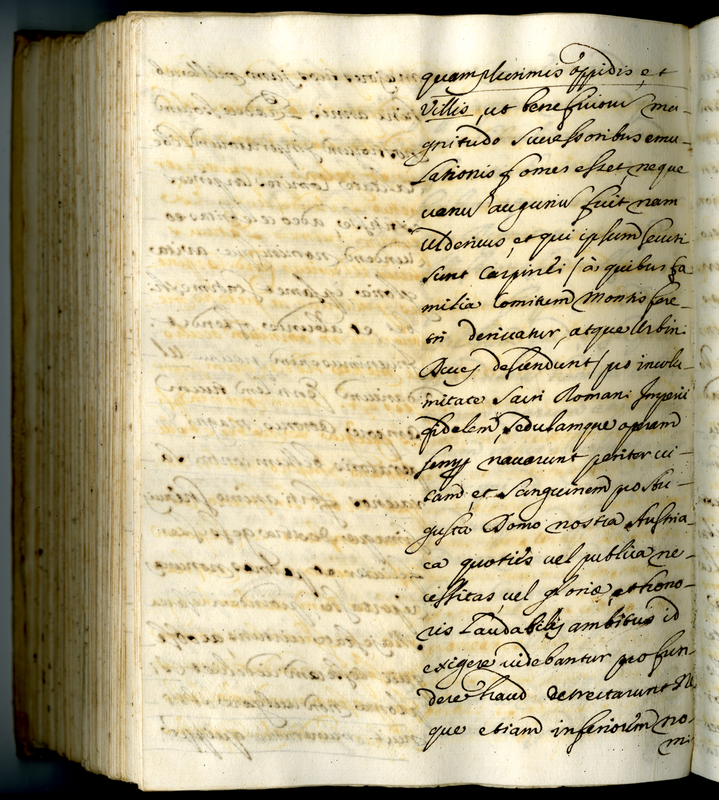 quamplurimis oppidis et
Villis, ut beneficiorum ma-
gnitudo successoribus emu-
lationis fomes esset neque
uanum augurium fuit nam
Uldericus, et qui ipsum secuti
sunt Carpinei (à quibus fa-
milia Comitum Montis fere-
tri deriuatur, atque Urbini
Duces descendunt) pro incolu-
mitate Sacri Romani Imperii
fidelem, sedulamque operam
semper nauarunt pariter ui-
tam, et Sanguinem pro Au-
gusta Domo nostra Austria-
ca quoties uel publica ne-
cessitas, uel gloriæ, et hono-
ris Laudabilis ambitus id
exigere uidebantur profun-
dere haud detrectarunt Ne
que etiam inferiorum no-
mi